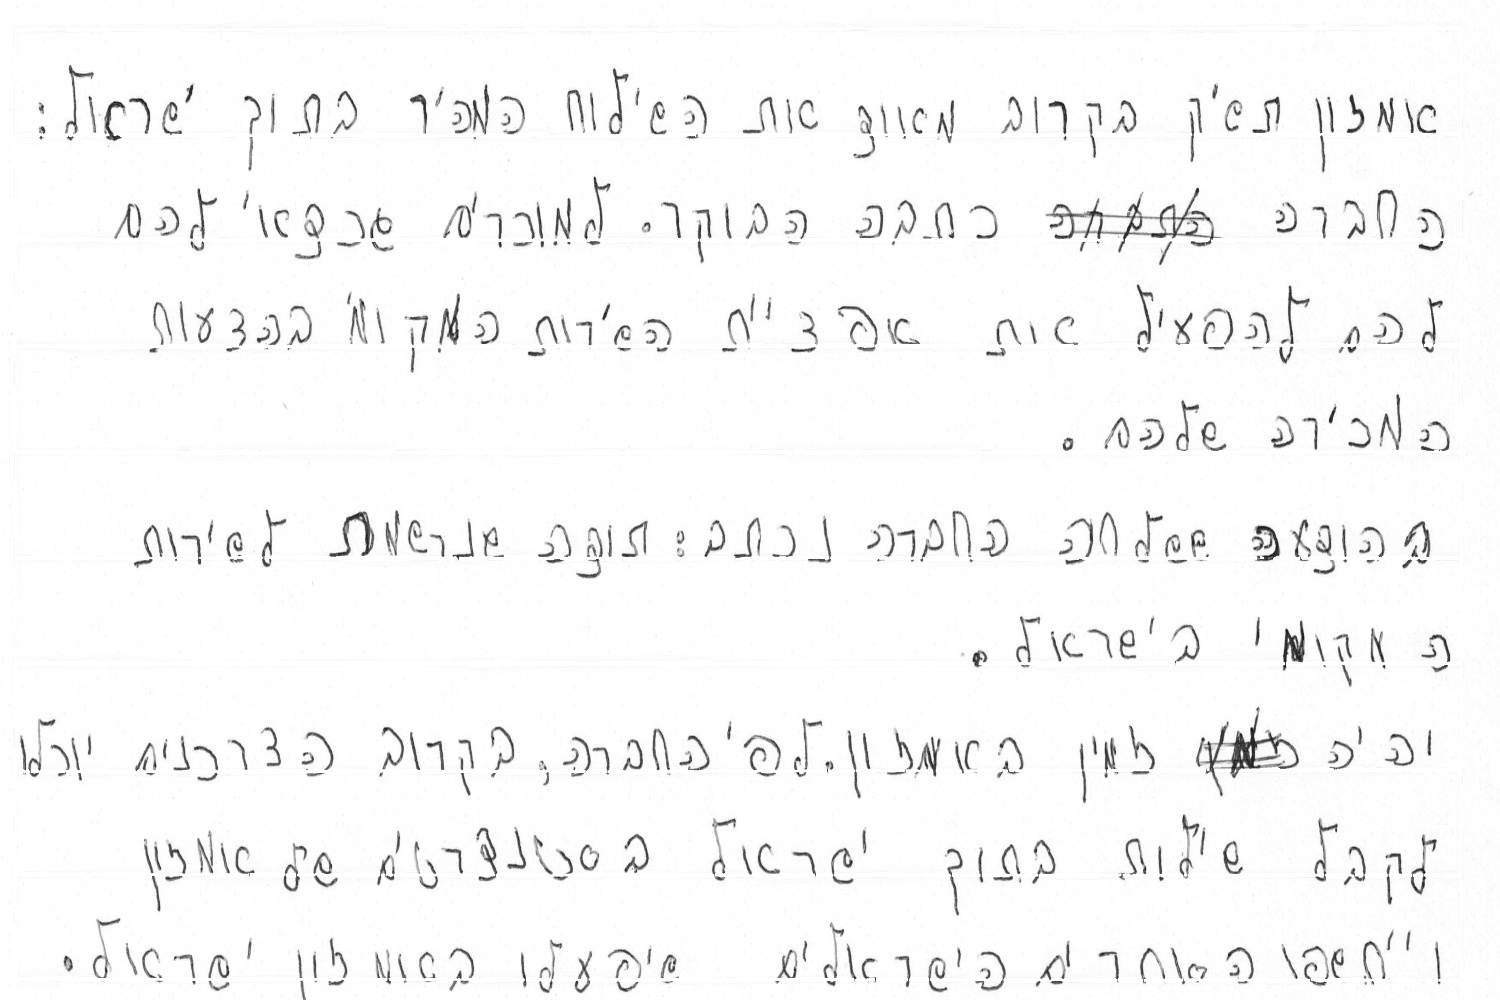 אמזון תשיק בקרוב מאוד את השילוח המהיר בתוך ישראל:
החברה כתבה הבוקר. למוכרים שכבאו להם
להם להפעיל את אפציית השירות המקומי בהצעות
המכירה שלהם.
בהודעה ששלחה החברה נכתב: תודה שנרשמת לשירות
המקומי בישראל.
יהיה זמין באמזון. לפי החברה, בקרוב הצרכנים יוכלו
לקבל שילוח בתוך ישראל בסטנדרטים של אמזון
וייחשפו האוחרים הישראלים שיפעלו באמזון ישראל.